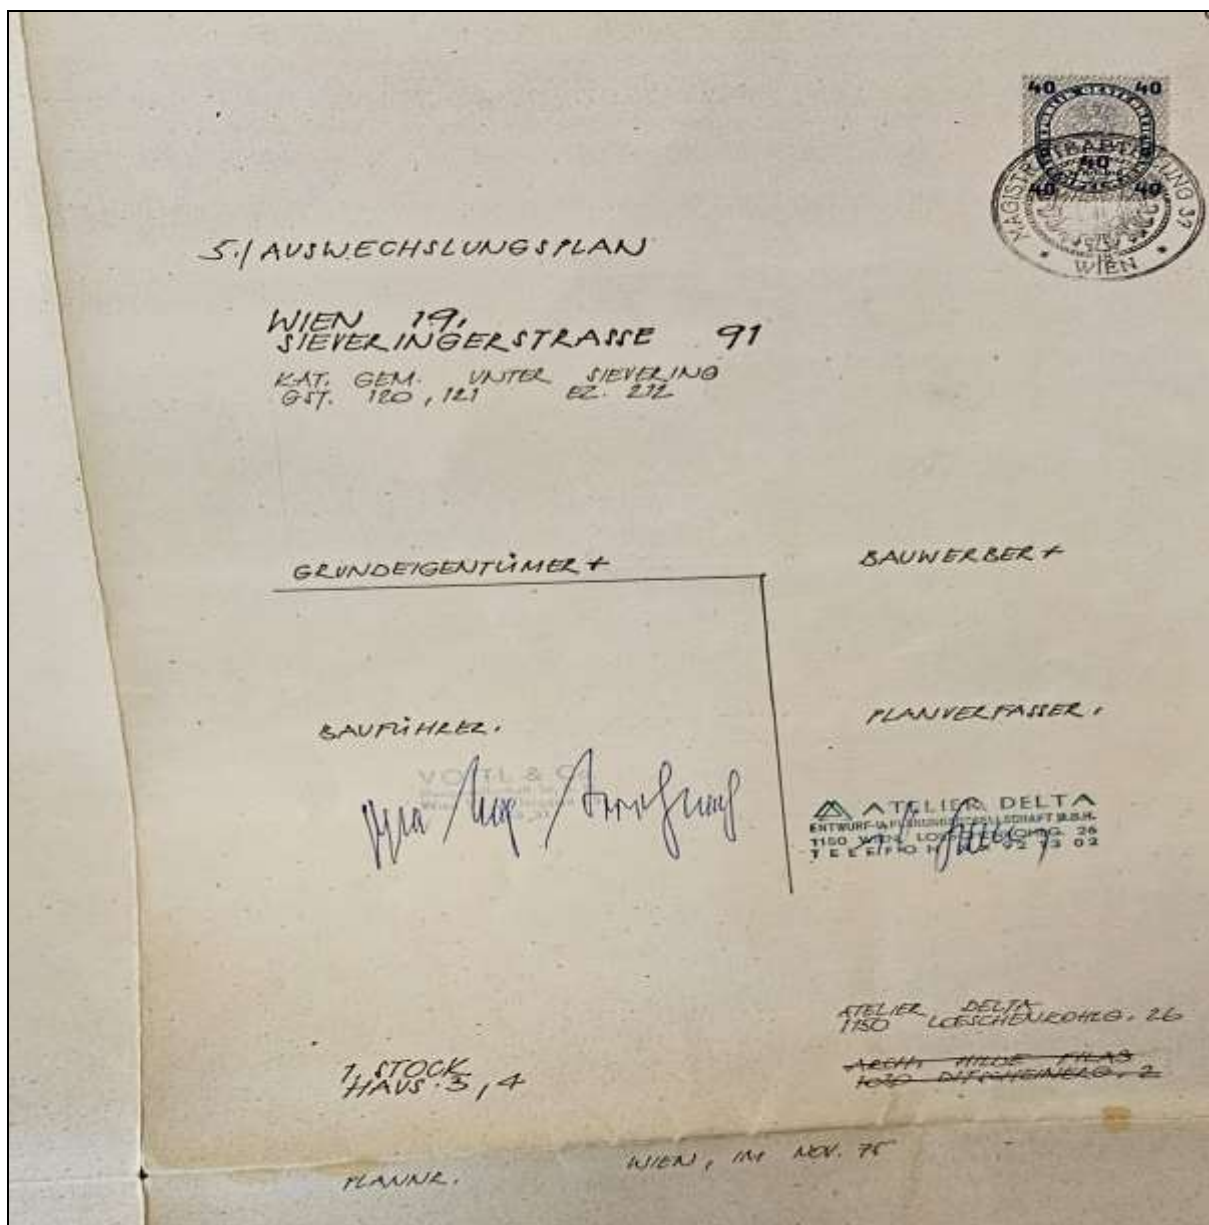 40 40
MAGISTRATSABTEILUNG 37
40
40 40
WIEN
5./ AUSWECHSLUNGSPLAN
WIEN 19,
SIEVERINGERSTRASSE 91
KAT. GEM. UNTER SIEVERING
GST. 120, 121 EZ. 212
GRUNDEIGENTÜMER +
BAUWERBER +
BAUFÜHRER.
PLANVERFASSER.
& Co
ATELIER DELTA
ENTWURF-U. PLANUNGSGESELLSCHAFT M.B.H.
1150 WIEN, 26
TELEFON 02
ATELIER DELTA
1150 LOESCHENKOHLG. 26
ARCH. HILDE FILAS
2
1. STOCK
HAUS 3, 4
WIEN, IM NOV. 75
PLANNR.